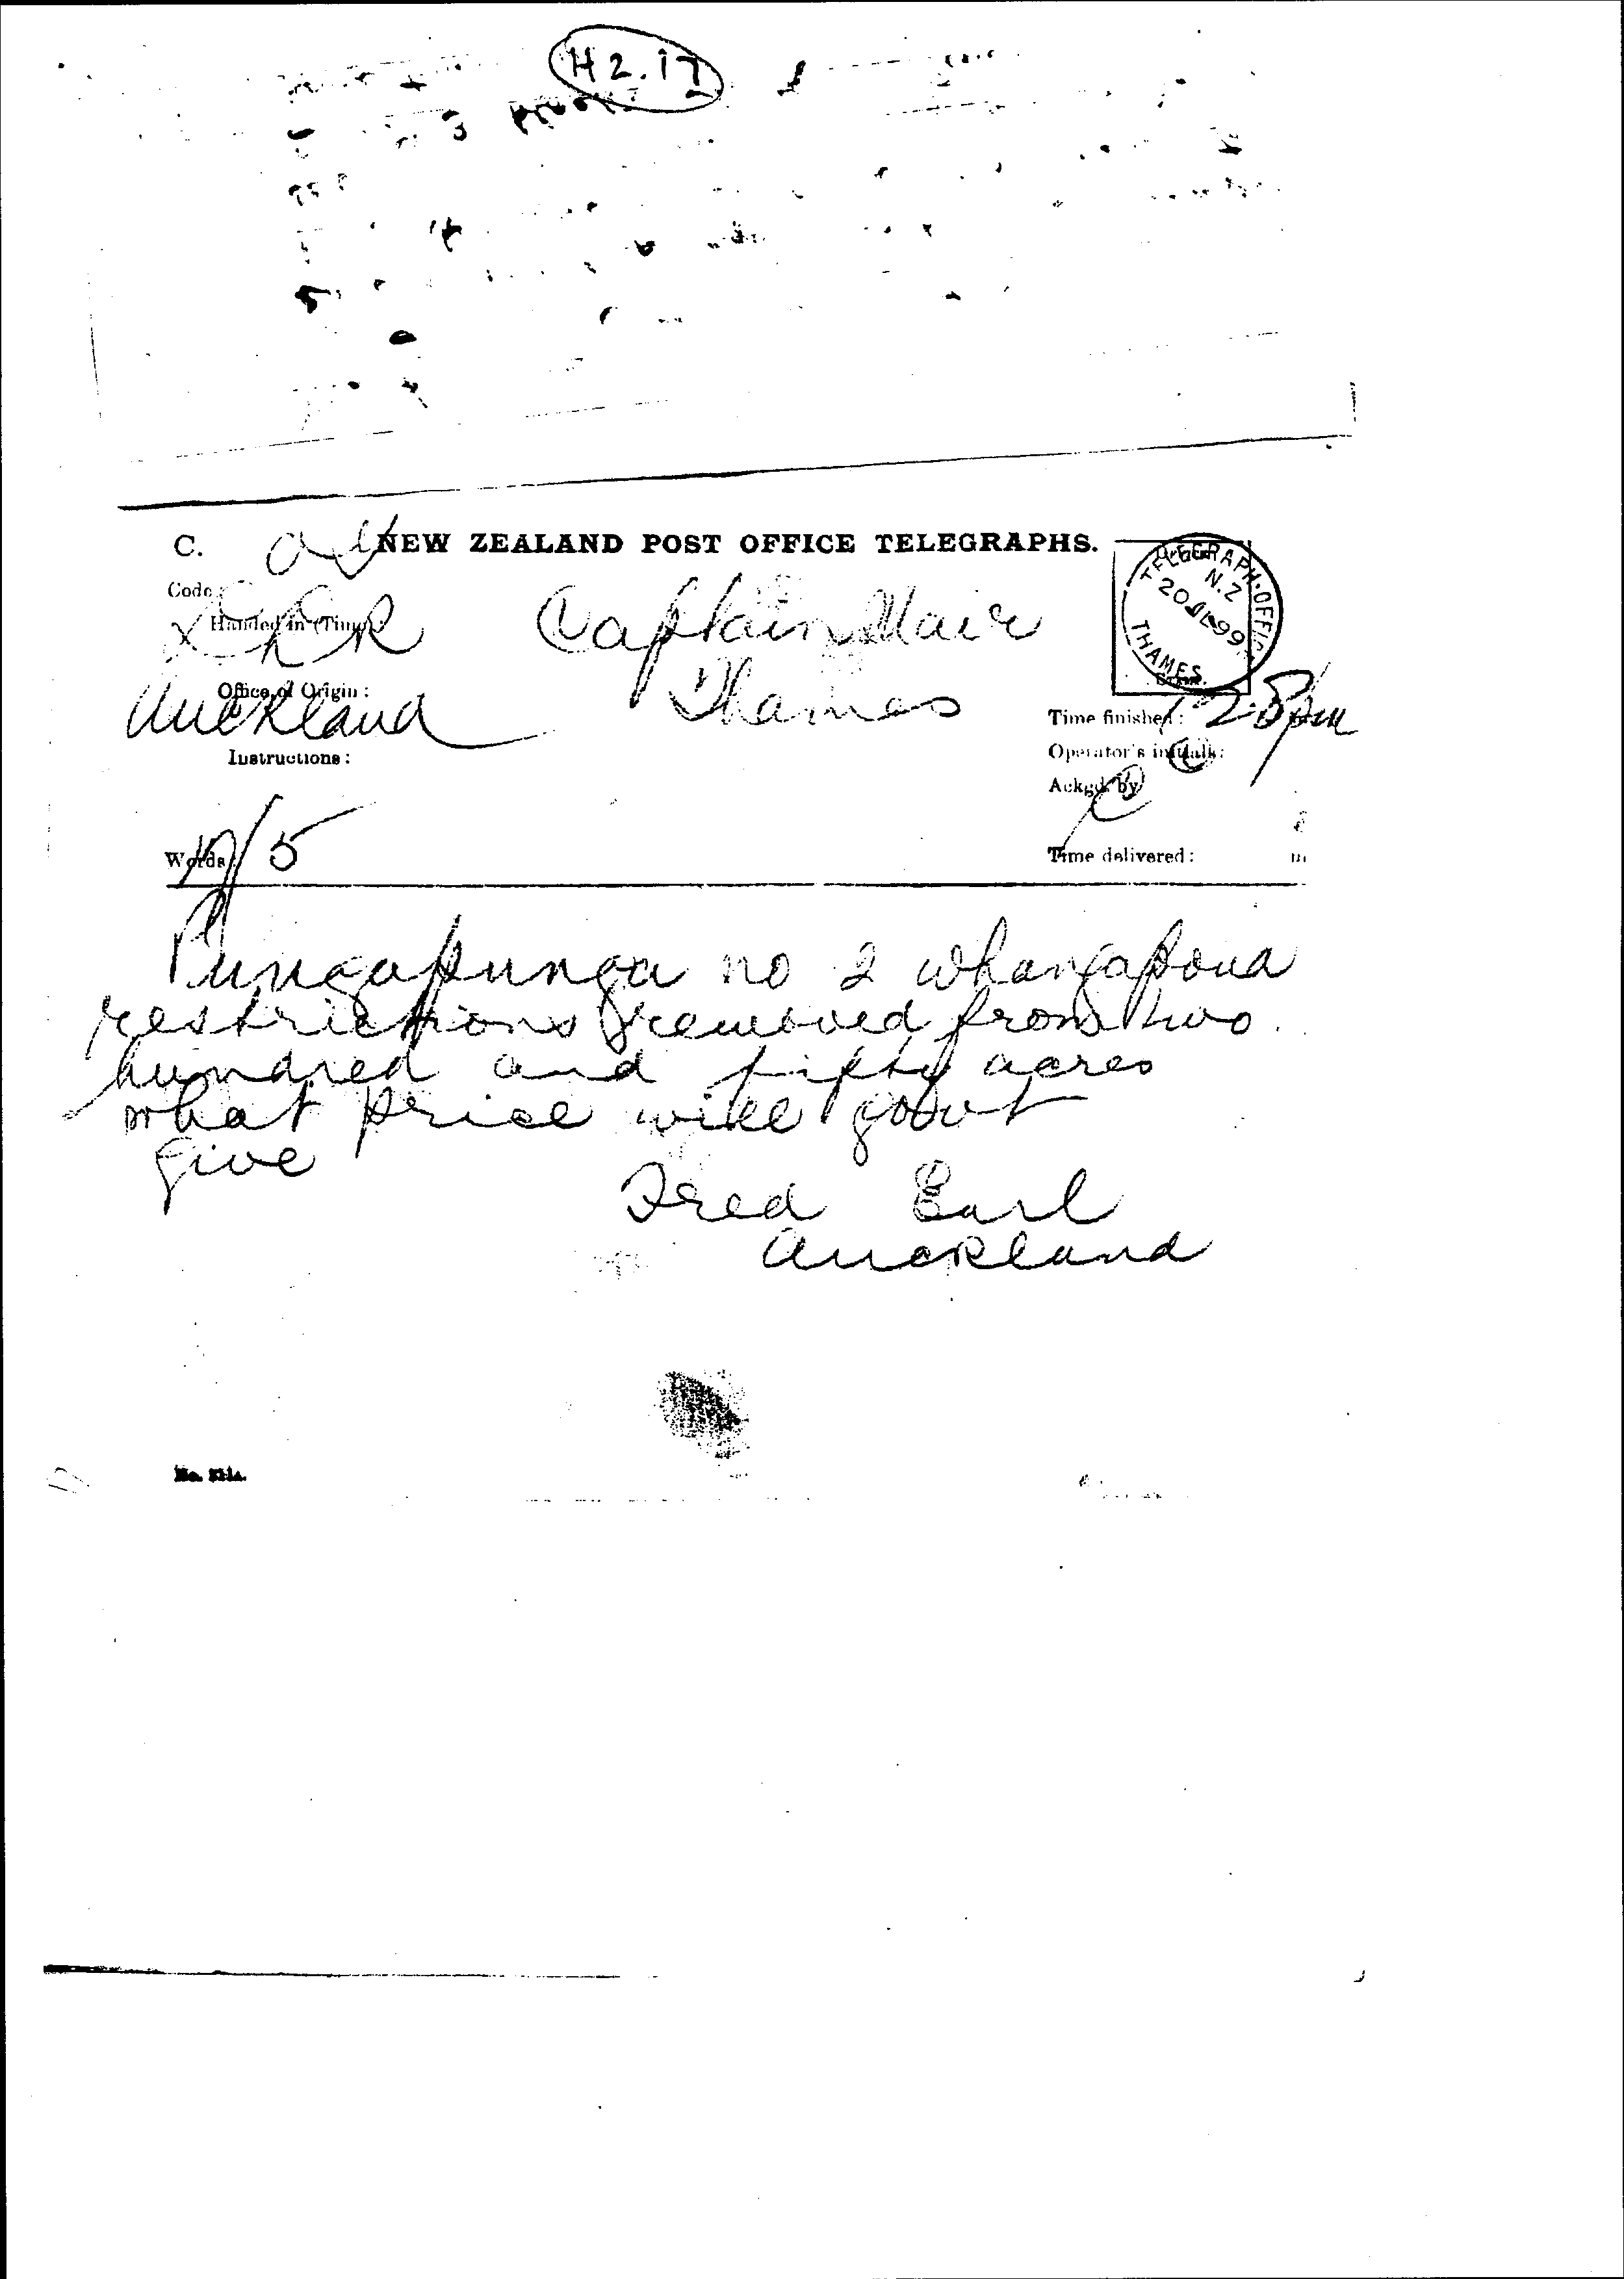 H2.17
C. NEW ZEALAND POST OFFICE TELEGRAPHS.
Code:
Handed in (Time):
Captain Mair
Office of Origin:
Auckland
Thames
Instructions:
TELEGRAPH·OFFICE N.Z 20 JL 99 THAMES
Time finished: 2.8 pm
Operator's initials:
Ackgd. by
Words: 5
Time delivered: m
Pungapunga no 2 whangapoua
restrictions removed from two
hundred and fifty acres
what price will govt
give
Fred Earl
Auckland